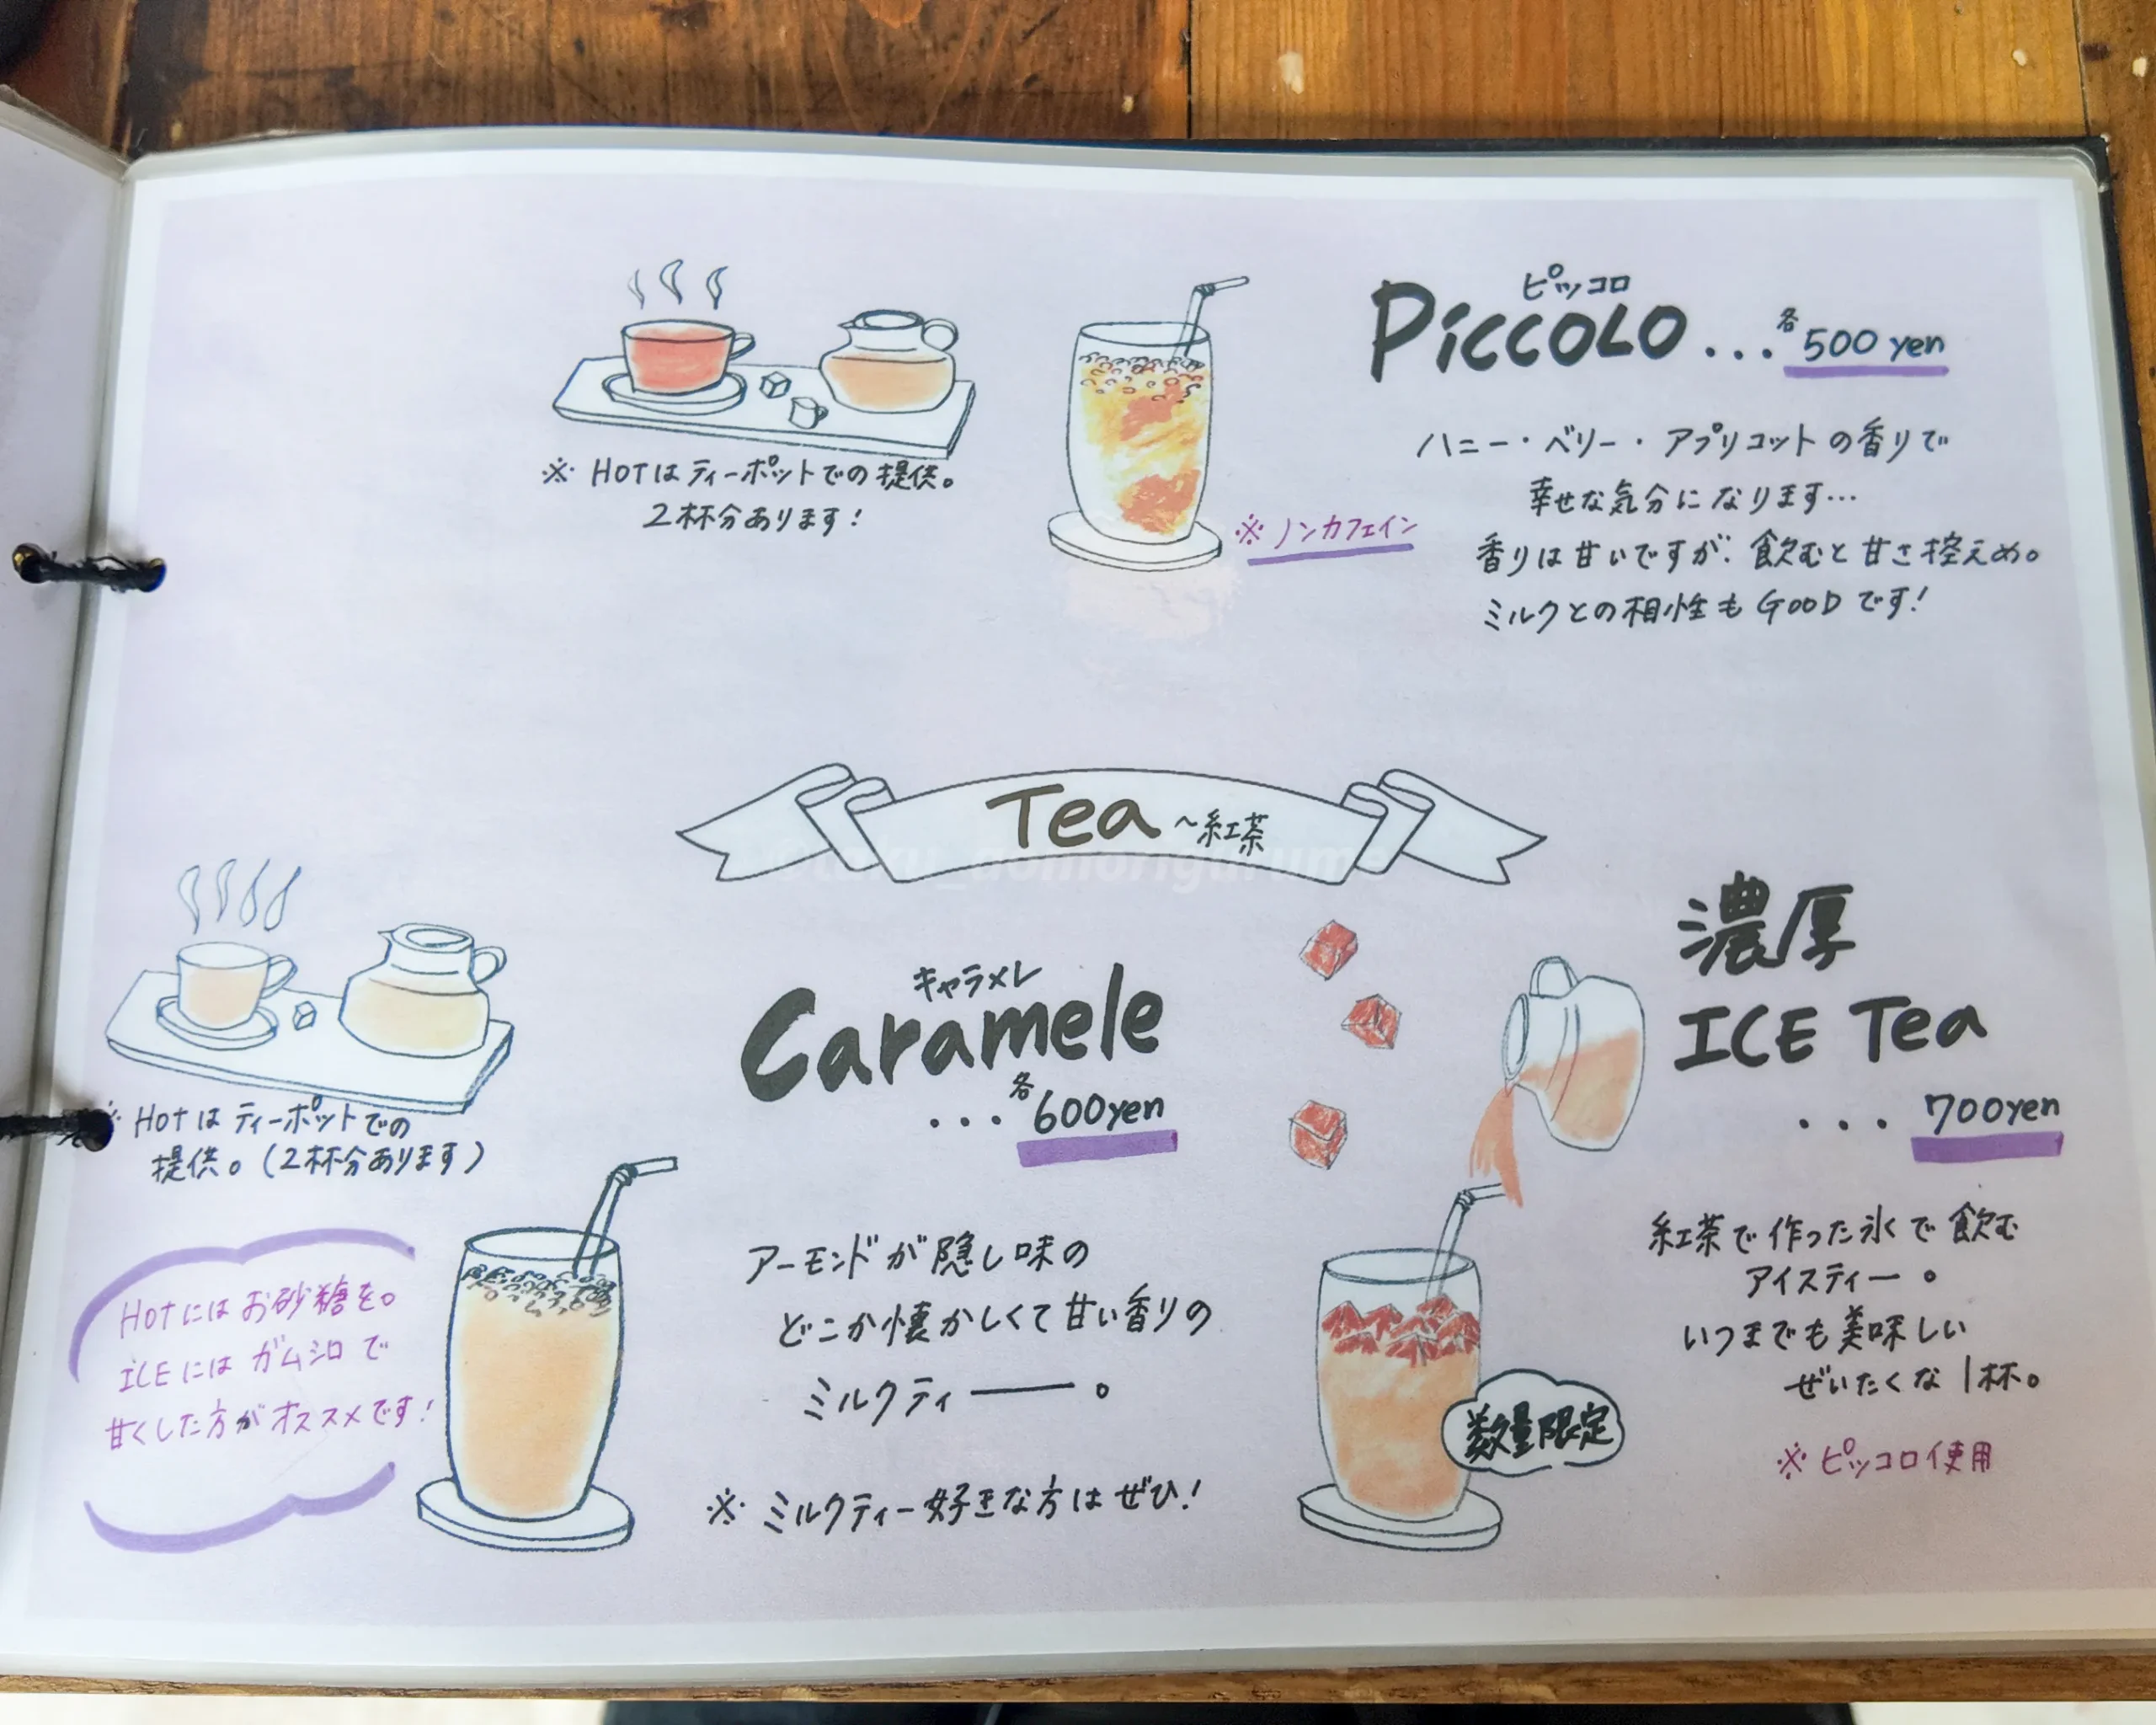 ピッコロ
Piccolo ... 各 500 yen
ハニー・ベリー・アプリコットの香りで
幸せな気分になります…
香りは甘いですが、飲むと甘さ控えめ。
ミルクとの相性もGOODです!
※ノンカフェイン
※ HOTはティーポットでの提供。
2杯分あります!
Tea ~紅茶
キャラメレ
Caramele
... 各 600yen
アーモンドが隠し味の
どこか懐かしくて甘い香りの
ミルクティ――。
※ ミルクティー好きな方はぜひ!
※ Hotはティーポットでの
提供。(2杯分あります)
Hotにはお砂糖を。
ICEにはガムシロで
甘くした方がオススメです!
濃厚
ICE Tea
... 700yen
紅茶で作った氷で飲む
アイスティー。
いつまでも美味しい
ぜいたくな1杯。
※ピッコロ使用
数量限定